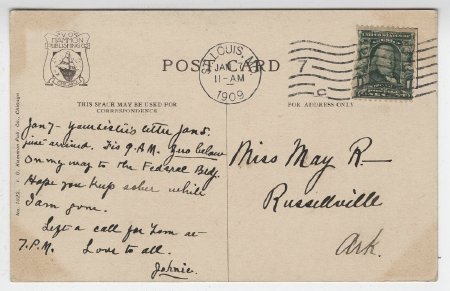 V.O.
HAMMON
PUBLISHING CO.
CHICAGO
POST CARD
ST. LOUIS, MO.
JAN 7
11-AM
1909
7
THIS SPACE MAY BE USED FOR
CORRESPONDENCE
FOR ADDRESS ONLY
Jan 7 - your letter Jan 5.
just arrived. Tis 9 A.M. zero below
On my way to the Federal Bldg.
Hope you keep sober while
I am gone.
Left a call for Tom at
7 P.M. Love to all.
Johnie.
Miss May R—
Russellville
Ark.
V. O. Hammon Pub. Co., Chicago